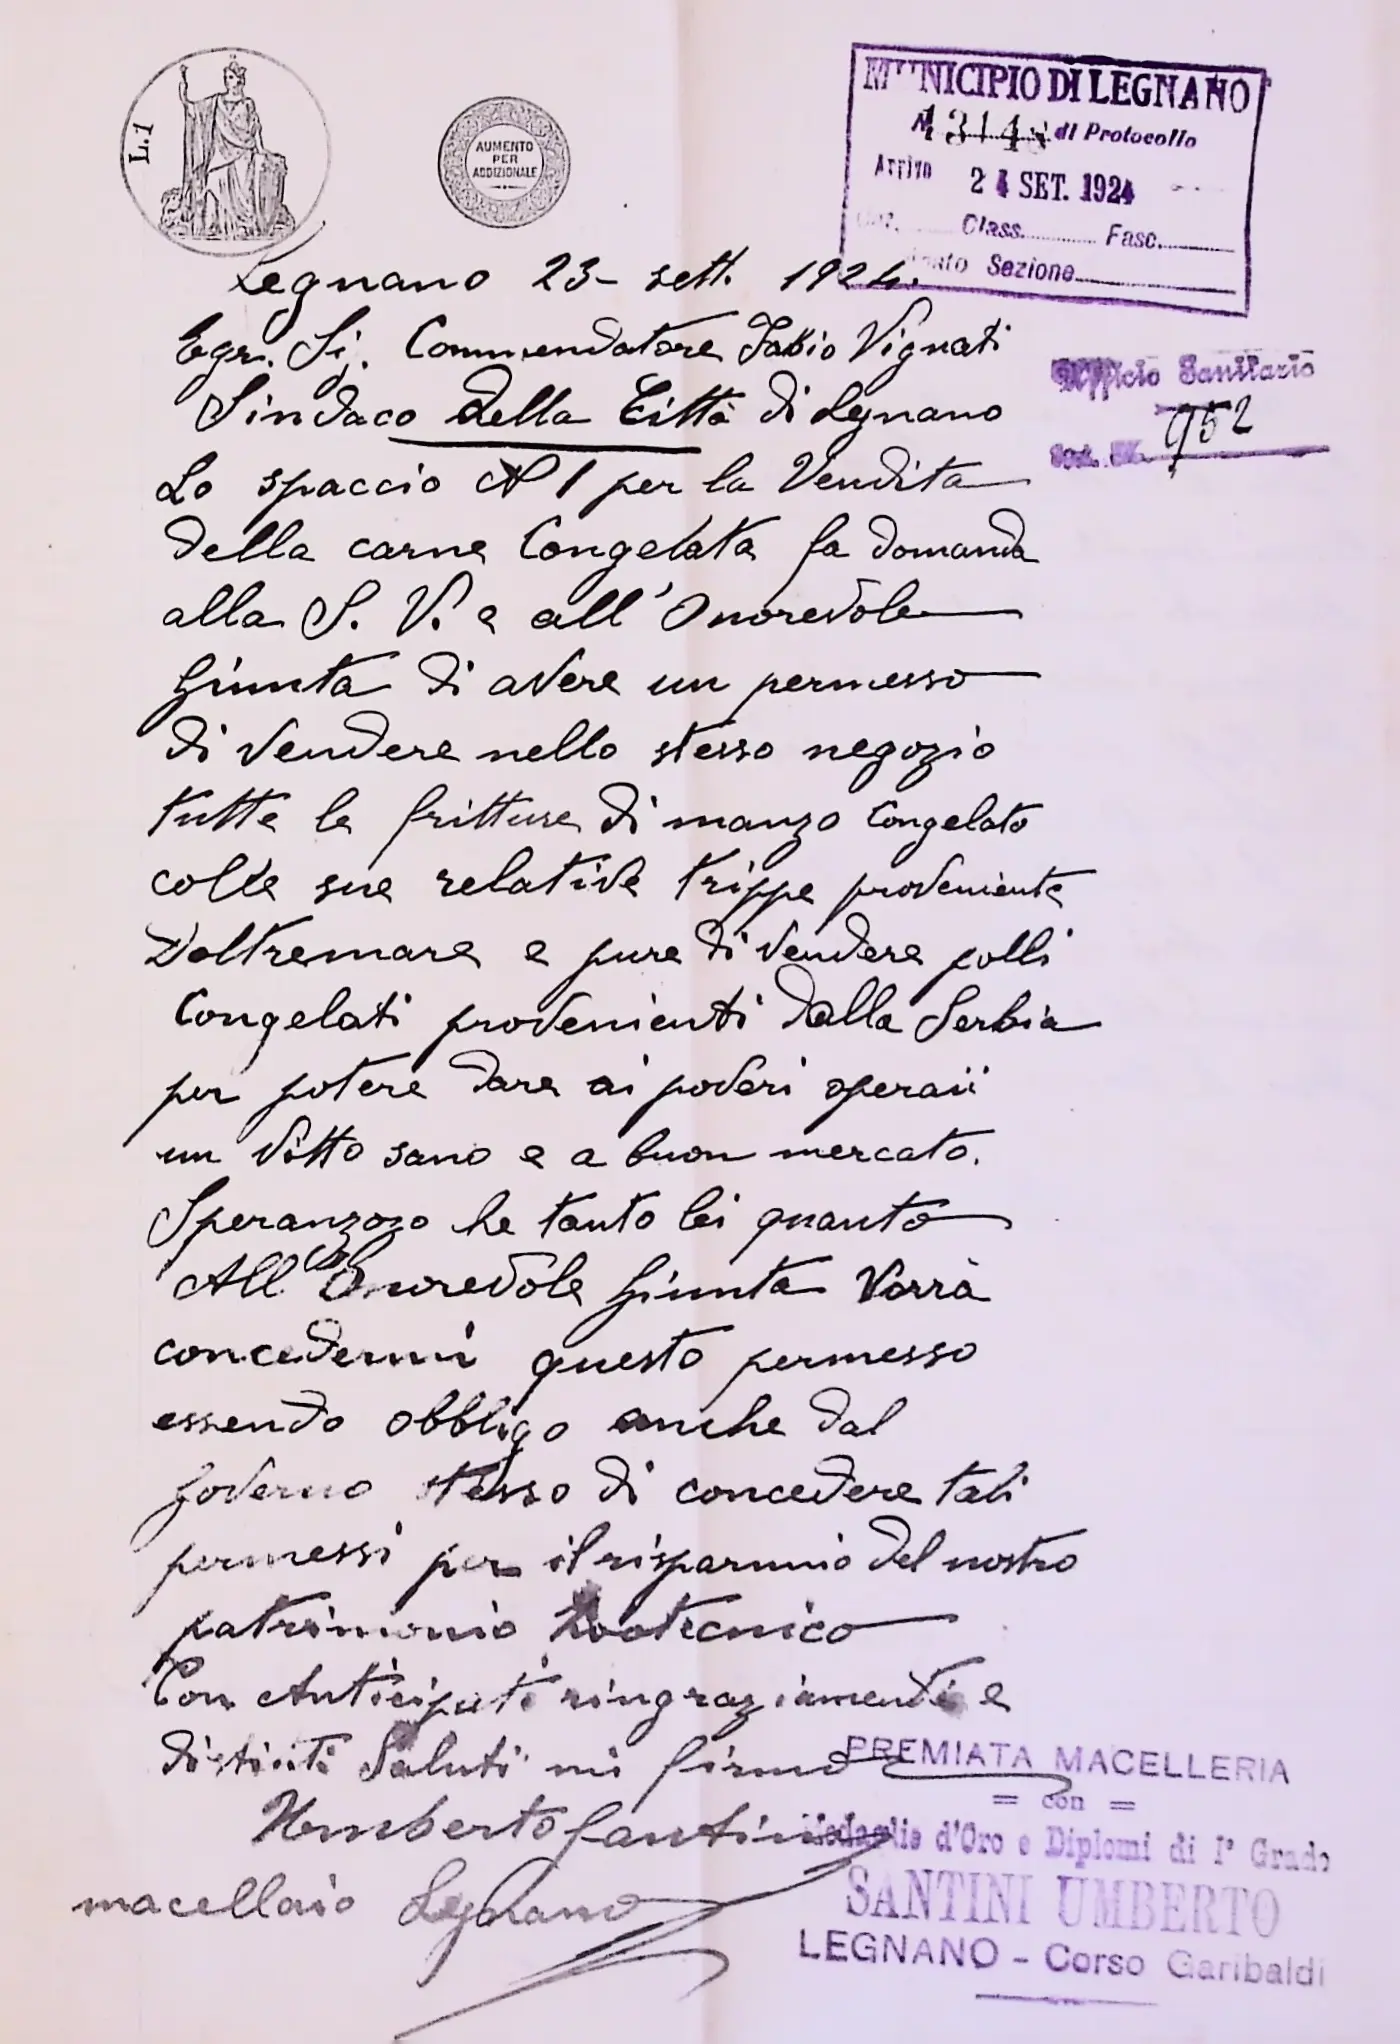 L.1
AUMENTO
PER
ADDIZIONALE
MUNICIPIO DI LEGNANO
N di Protocollo
Arrivo 24 SET. 1924
Class. Fasc.
Sezione
Legnano 23- sett. 1924.
Egr. Sig. Commendatore Fabio Vignati
Sindaco della Città di Legnano
Ufficio Sanitario
952
Lo spaccio N 1 per la Vendita
della carne Congelata fa domanda
alla S. V. e all'Onorevole
Giunta di avere un permesso
di vendere nello stesso negozio
tutte le fritture di manzo Congelato
colle sue relative trippe proveniente
D'oltremare e pure di vendere polli
Congelati provenienti dalla Serbia
per potere dare ai poveri operaii
un vitto sano e a buon mercato.
Speranzoso he tanto lei quanto
All'Onorevole Giunta Vorrà
concedermi questo permesso
essendo obbligo anche dal
Governo stesso di concedere tali
permessi per il risparmio del nostro
patrimonio Zootecnico
Con Anticipati ringraziamenti e
distinti Saluti mi firmo
Umberto Santini
macellaio Legnano
PREMIATA MACELLERIA
= con =
Medaglie d'Oro e Diplomi di I° Grado
SANTINI UMBERTO
LEGNANO - Corso Garibaldi